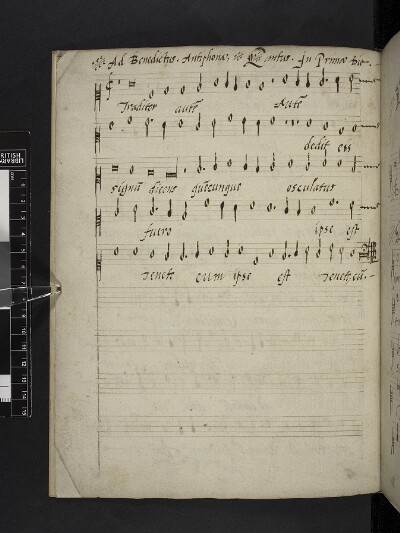 Ad Benedictus. Antiphona, Cantus. In Primo die.
Traditor autē
dedit eis
signū dicens quēcunque osculatus
fuero ipse est
tenete eum ipse est tenete, eū.
BRITISH
LIBRARY